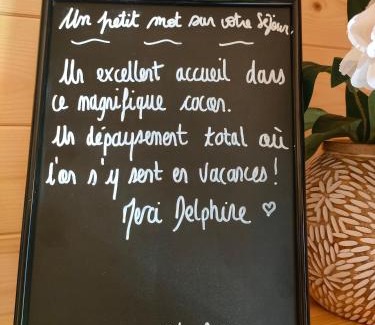 Un petit mot sur votre Séjour.
Un excellent accueil dans
ce magnifique cocon.
Un dépaysement total où
l'on s'y sent en vacances !
Merci Delphine ♡